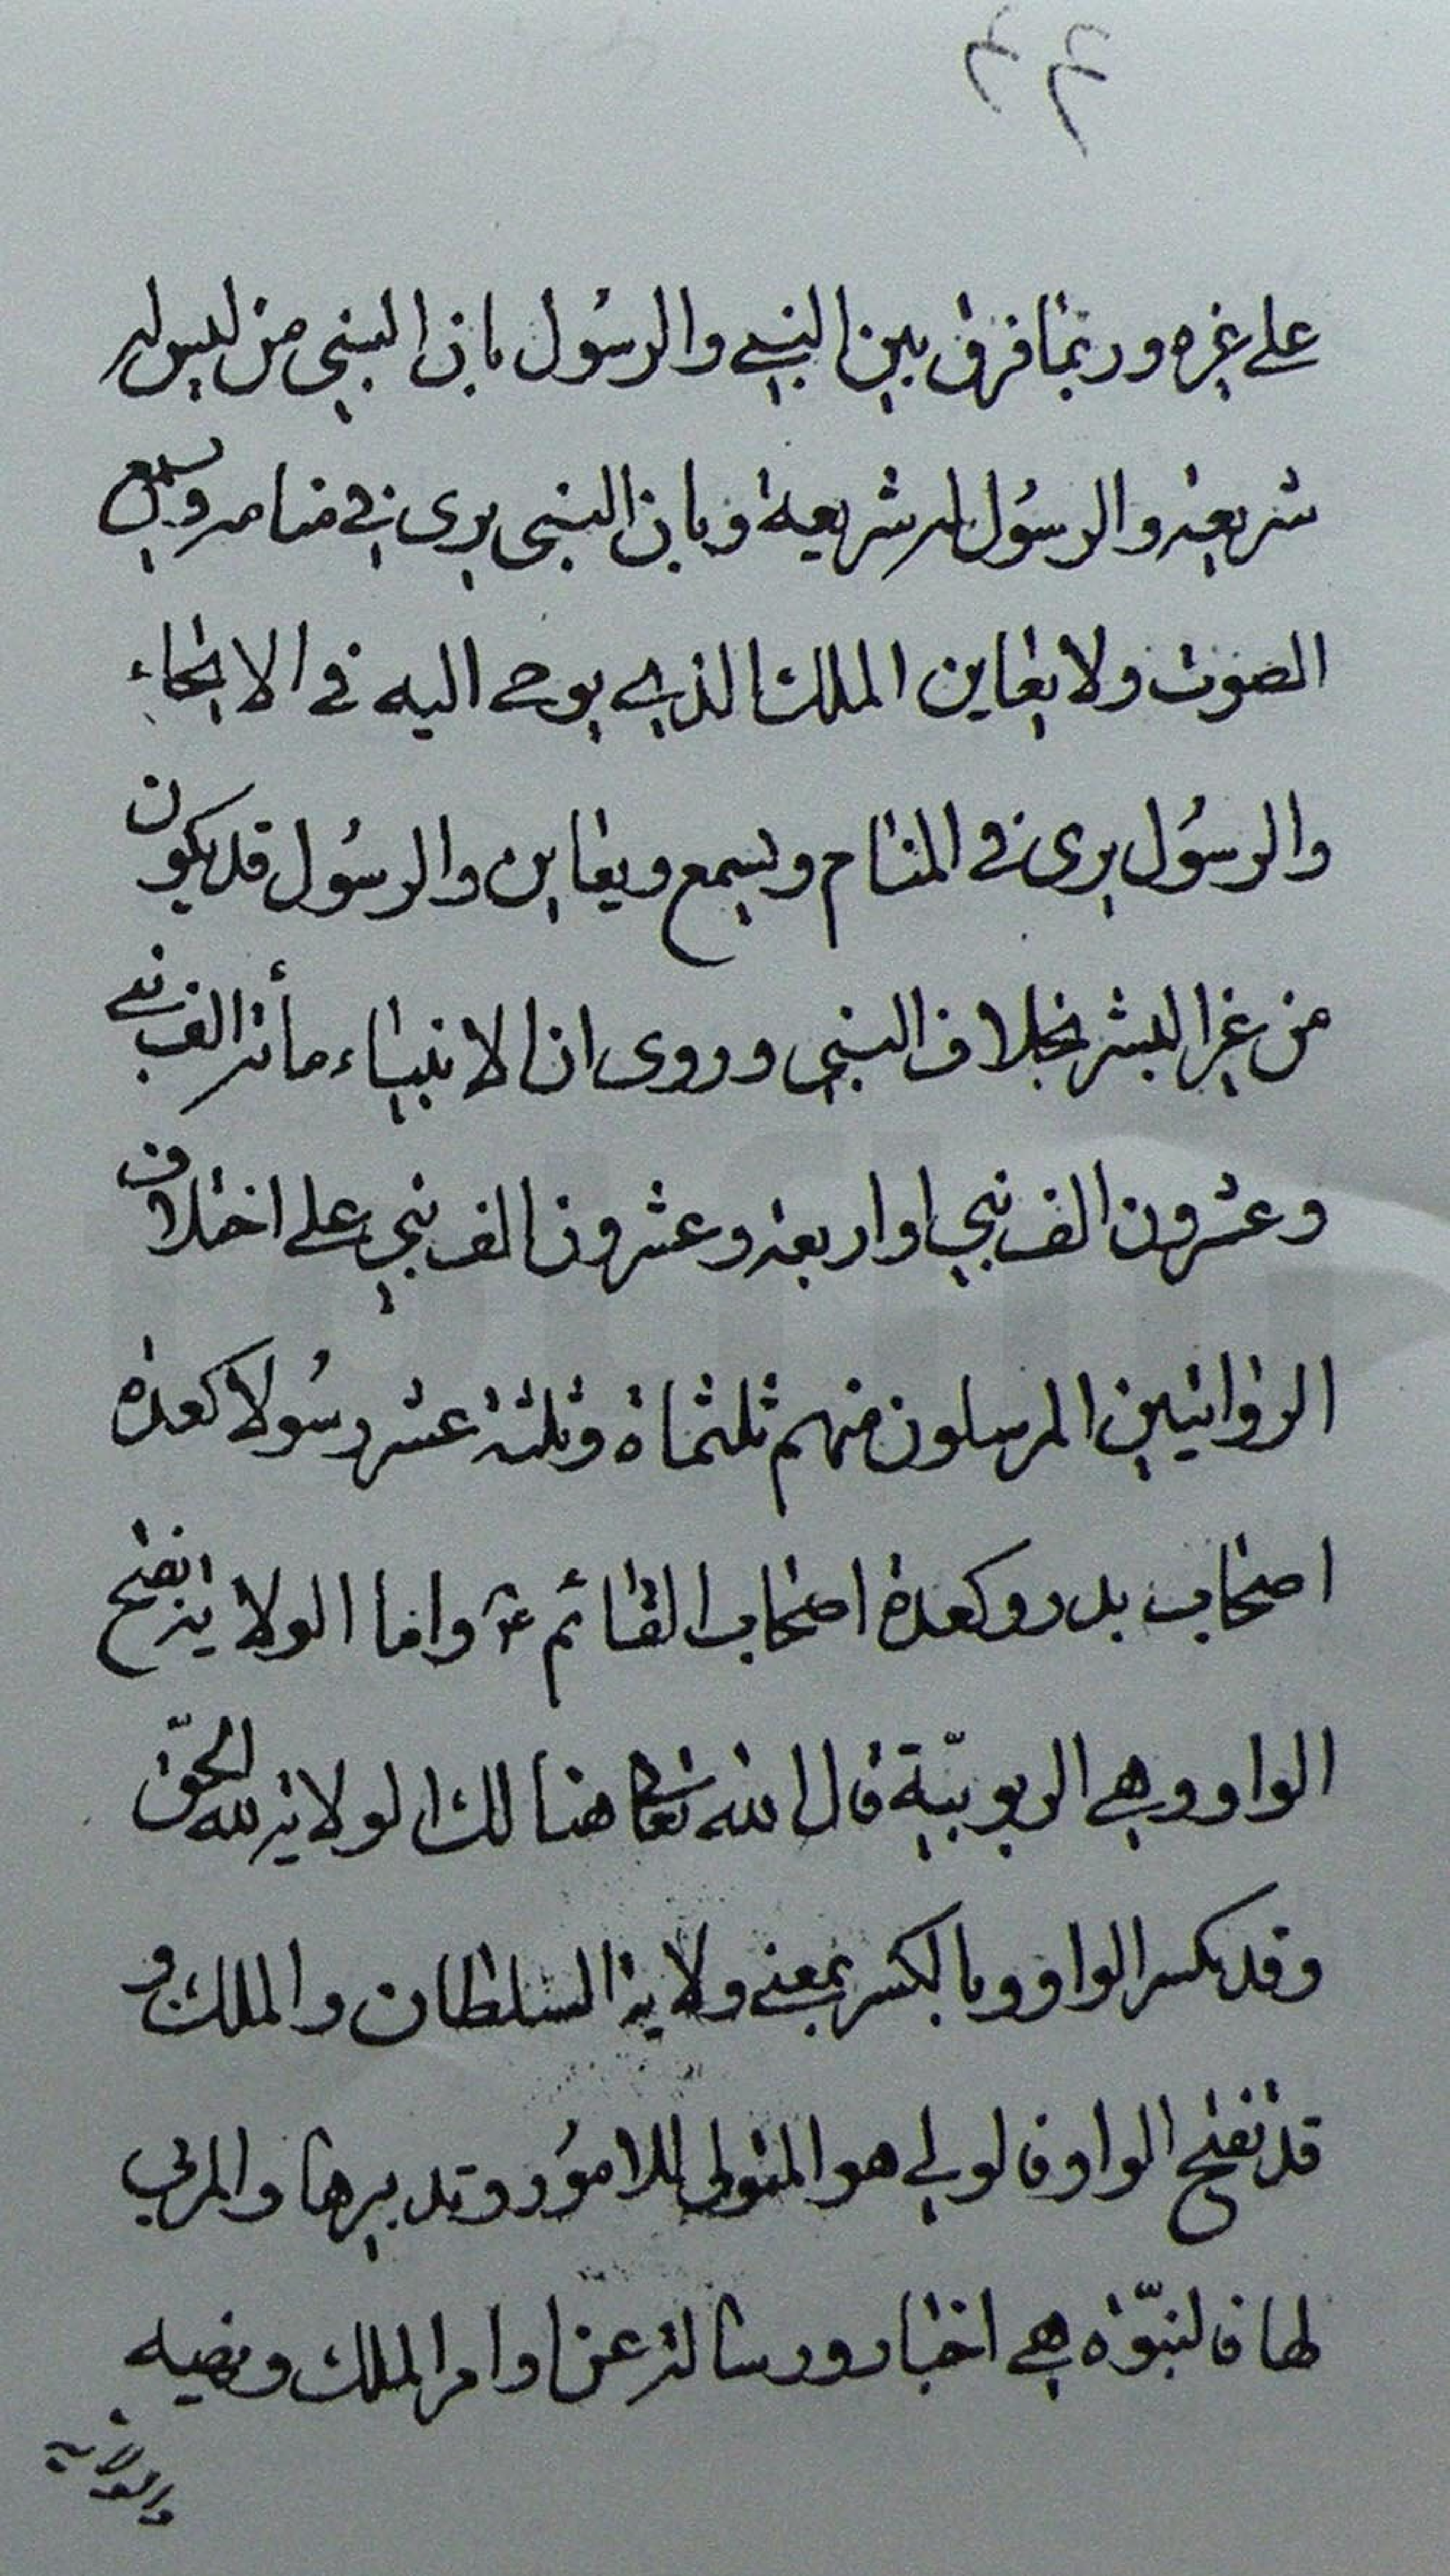 على غيره وربما فرق بين النبي والرسول بان النبي من ليس له
شريعة والرسول له شريعة وبان النبي يرى في منامه ويسمع
الصوت ولا يعاين الملك الذي يوحى اليه في الايحاء
والرسول يرى في المنام ويسمع ويعاين والرسول قد يكون
من غير البشر بخلاف النبي وروى ان الانبياء مأة الف نبي
وعشرون الف نبي او اربعة وعشرون الف نبي على اختلاف
الروايتين المرسلون منهم ثلثماة وثلثة عشر رسولا كعدة
اصحاب بدر وكعدة اصحاب القائم ع واما الولاية بفتح
الواو وهي الربوبيّة قال الله تعالى هنالك الولاية لله الحقّ
وقد يكسر الواو وبالكسر بمعنى ولاية السلطان والملك و
قد تفتح الواو فالولي هو المتولى للامور وتدبيرها والمربي
لها فالنبوّة هي اخبار ورسالة عن اوامر الملك ونهيه
والولاية